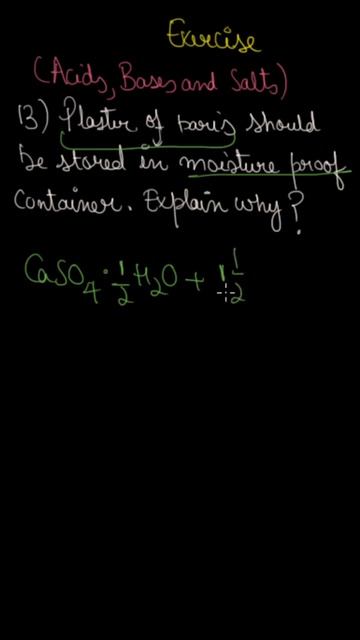 Exercise
(Acids, Bases and Salts)
13) Plaster of paris should
be stored in moisture proof
container. Explain why?
CaSO₄·½H₂O + 1½